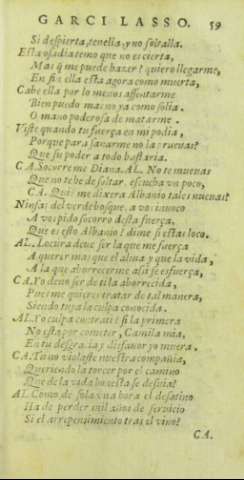 GARCI LASSO. 59
Si despierta, tenella, y no soltalla.
Esta osadia temo que no es cierta,
Mas q̃ me puede hazer? quiero llegarme,
En fin ella esta agora como muerta,
Cabe ella por lo menos assentarme
Bien puedo mas no ya como solia.
O mano poderosa de matarme.
Viste quando tu fuerça en mi podia,
Porque para sanarme no la prueuas?
Que su poder a todo bastaria.
CA. Socorreme Diana. AL. No te mueuas
Que no te he de soltar. escucha vn poco,
CA. Quiẽ me dixera Albanio tales nueuas?
Ninfas del verde bosque. a vos inuoco
A vos pido socorro desta fuerça.
Que es esto Albanio? dime si estas loco.
AL. Locura deue ser la que me fuerça
A querer mas que el alma y que la vida,
A la que aborrecerme assi se esfuerça,
CA. Yo deuo ser de ti la aborrecida,
Pues me quieres tratar de tal manera,
Siendo tuya la culpa conocida.
AL. Yo culpa contra ti? si la primera
No esta por cometer, Camila mia,
En tu desgracia y disfauor yo muera.
CA. Tu no violaste nuestra compañia,
Queriendo la torcer por el camino
Que de la vida honesta se desuia?
AL. Como de sola vna hora el desatino
Ha de perder mil años de seruicio
Si el arrepentimiento tras el vino?
CA.